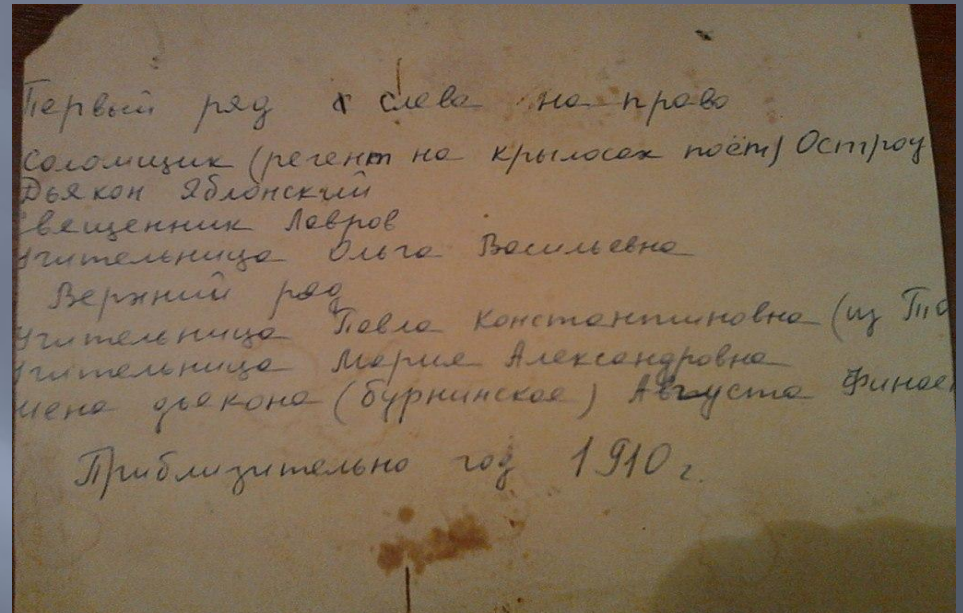 Первый ряд с слева на право
Соломщик (регент на крылосах поёт) Остроу
Дьякон Яблонский
Священник Лавров
Учительница Ольга Васильевна
Верхний ряд
Учительница Павла Константиновна (из То
Учительница Мария Александровна
жена дьякона (бурнинское) Августа Финае
Приблизительно год 1910 г.